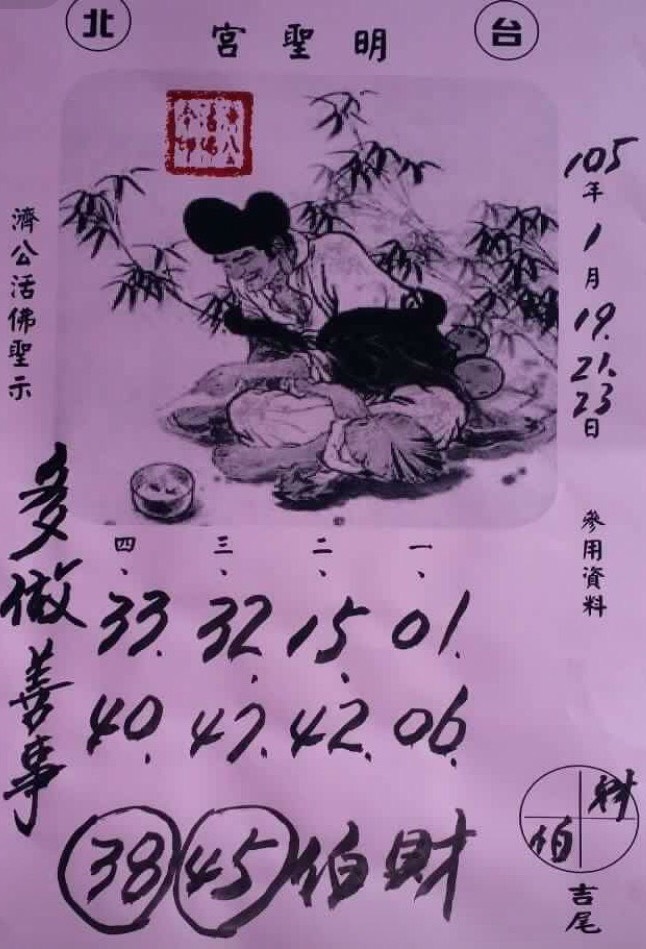 台北
明聖宮
105年1月19.21.23日
參用資料
濟公活佛聖示
一、二、三、四、
01. 15. 32. 33.
06. 42. 47. 40.
財伯 45 38
多做善事
財
伯
吉尾